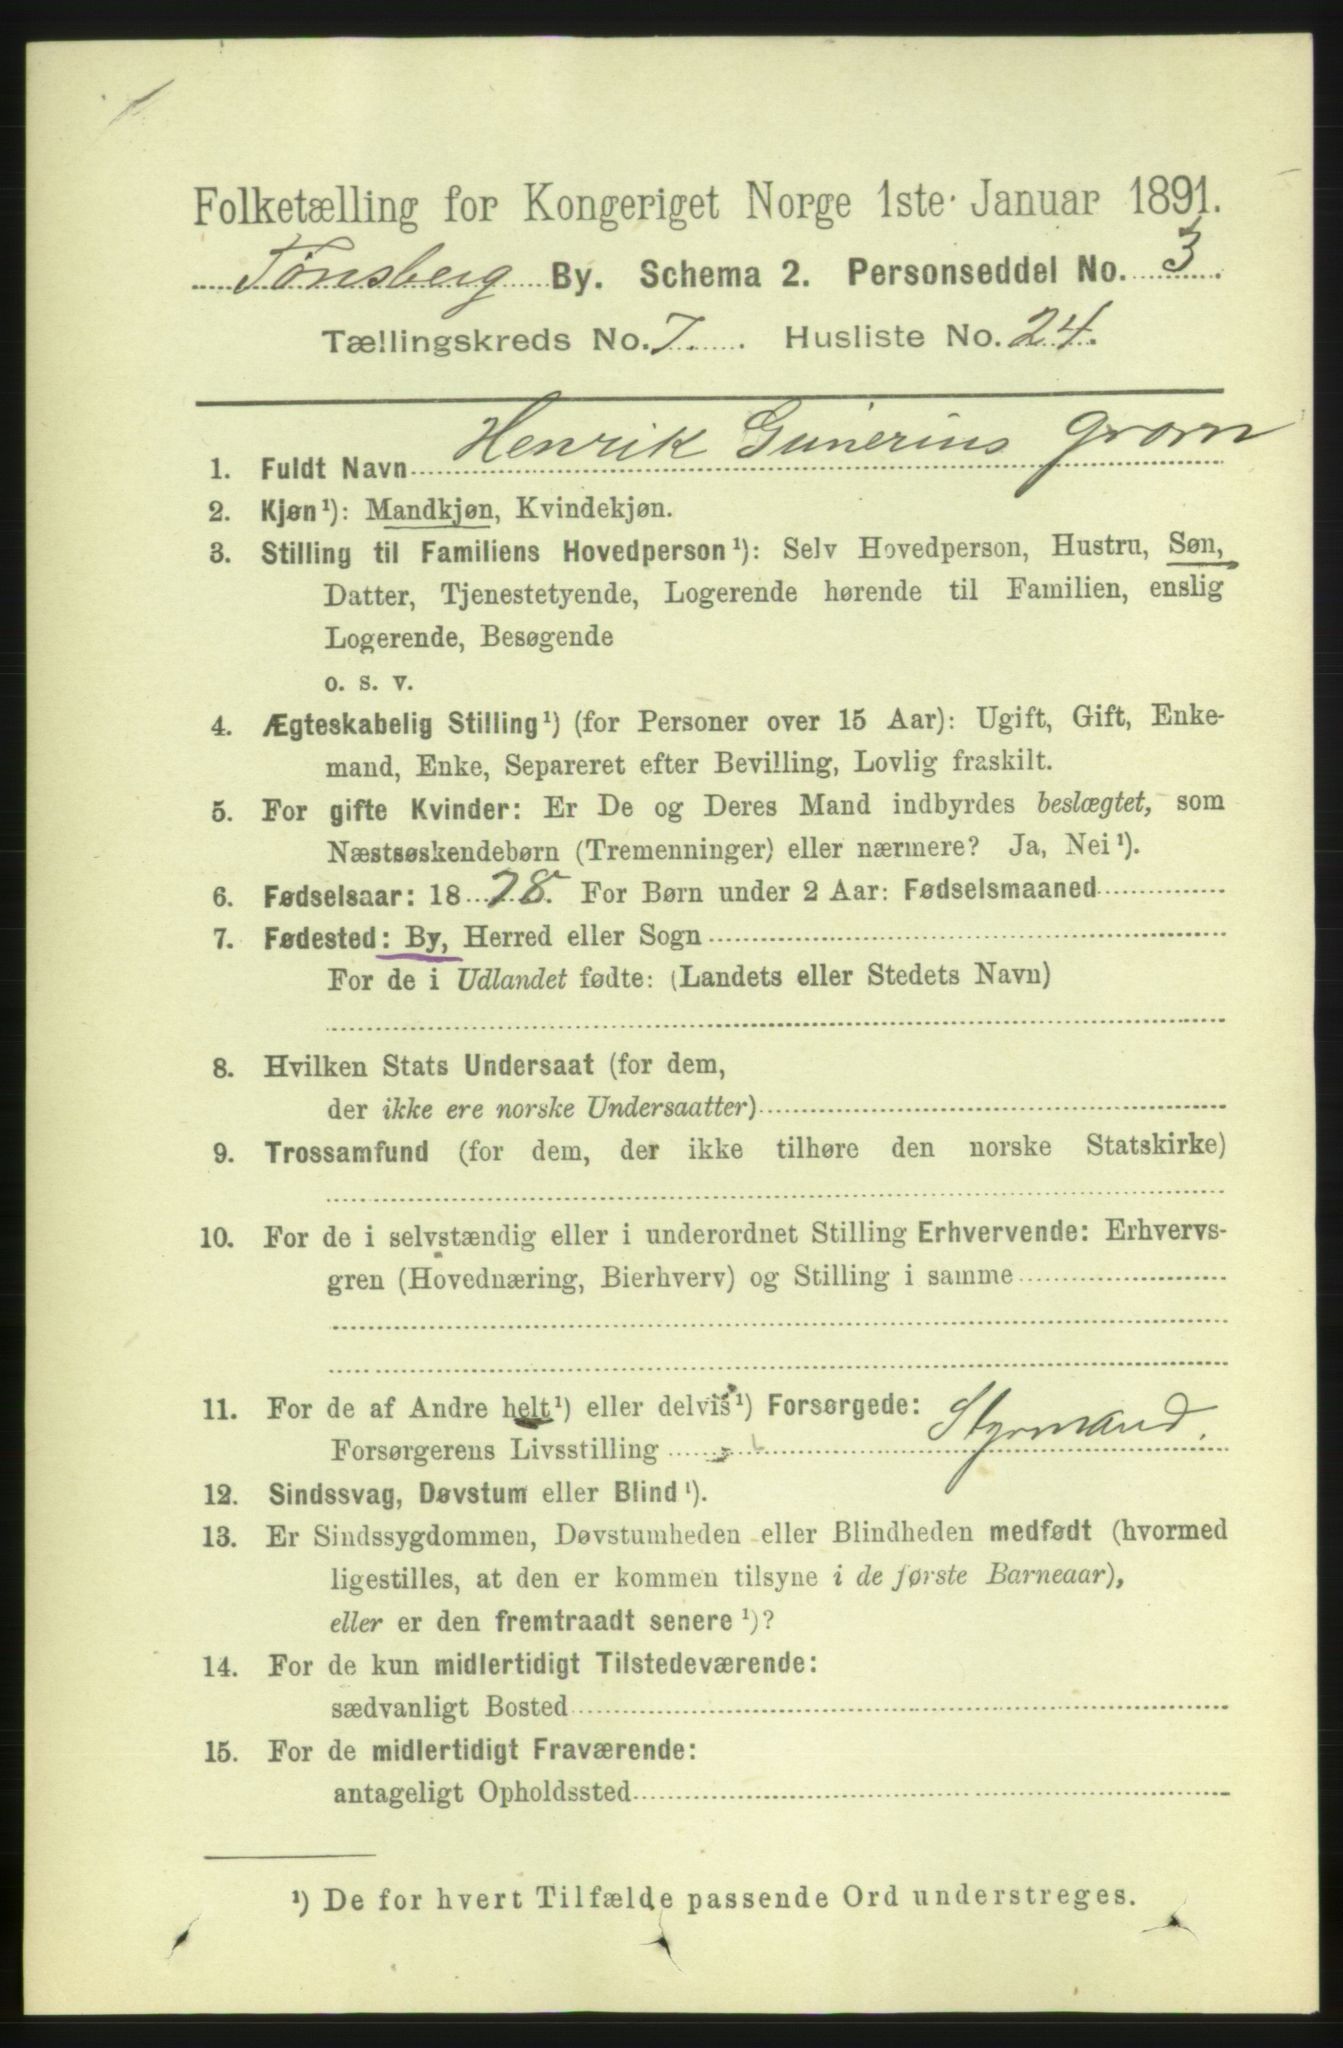 Folketælling for Kongeriget Norge 1ste Januar 1891.
Tønsberg By. Schema 2. Personseddel No. 3.
Tællingskreds No. 7. Husliste No. 24.
1. Fuldt Navn Henrik Gunerius Grorn
2. Kjøn¹): Mandkjøn, Kvindekjøn.
3. Stilling til Familiens Hovedperson¹): Selv Hovedperson, Hustru, Søn,
Datter, Tjenestetyende, Logerende hørende til Familien, enslig
Logerende, Besøgende
o. s. v.
4. Ægteskabelig Stilling¹) (for Personer over 15 Aar): Ugift, Gift, Enke-
mand, Enke, Separeret efter Bevilling, Lovlig fraskilt.
5. For gifte Kvinder: Er De og Deres Mand indbyrdes beslægtet, som
Næstsøskendebørn (Tremenninger) eller nærmere? Ja, Nei¹).
6. Fødselsaar: 1878. For Børn under 2 Aar: Fødselsmaaned
7. Fødested: By, Herred eller Sogn
For de i Udlandet fødte: (Landets eller Stedets Navn)
8. Hvilken Stats Undersaat (for dem,
der ikke ere norske Undersaatter)
9. Trossamfund (for dem, der ikke tilhøre den norske Statskirke)
10. For de i selvstændig eller i underordnet Stilling Erhvervende: Erhvervs-
gren (Hovednæring, Bierhverv) og Stilling i samme
11. For de af Andre helt¹) eller delvis¹) Forsørgede:
Forsørgerens Livsstilling Styrmand.
12. Sindssvag, Døvstum eller Blind¹).
13. Er Sindssygdommen, Døvstumheden eller Blindheden medfødt (hvormed
ligestilles, at den er kommen tilsyne i de første Barneaar),
eller er den fremtraadt senere¹)?
14. For de kun midlertidigt Tilstedeværende:
sædvanligt Bosted
15. For de midlertidigt Fraværende:
antageligt Opholdssted
¹) De for hvert Tilfælde passende Ord understreges.